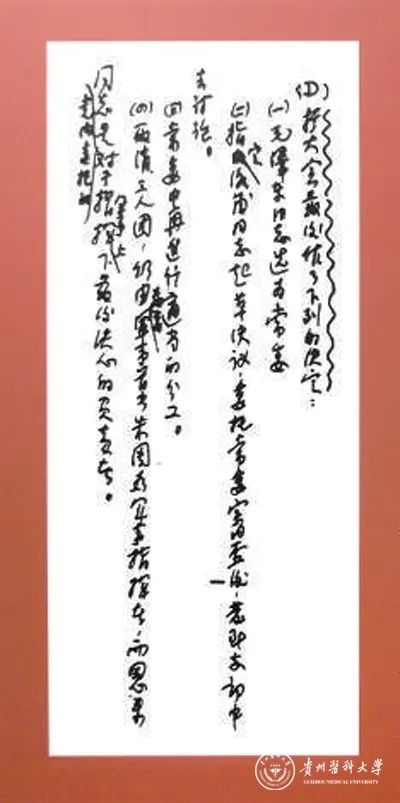 (D) 扩大会最後作了下列的决定：
(一) 毛泽东同志选为常委
(二) 指定洛甫同志起草决议，委托常委审查後，发到支部中
去讨论。
(三) 常委中再进行适当的分工。
(四) 取消三人团，仍由最高军事首长朱周为军事指挥者，而恩来
同志是党内委托的对于指挥军事上下最後决心的负责者。
貴州醫科大學
GUIZHOU MEDICAL UNIVERSITY